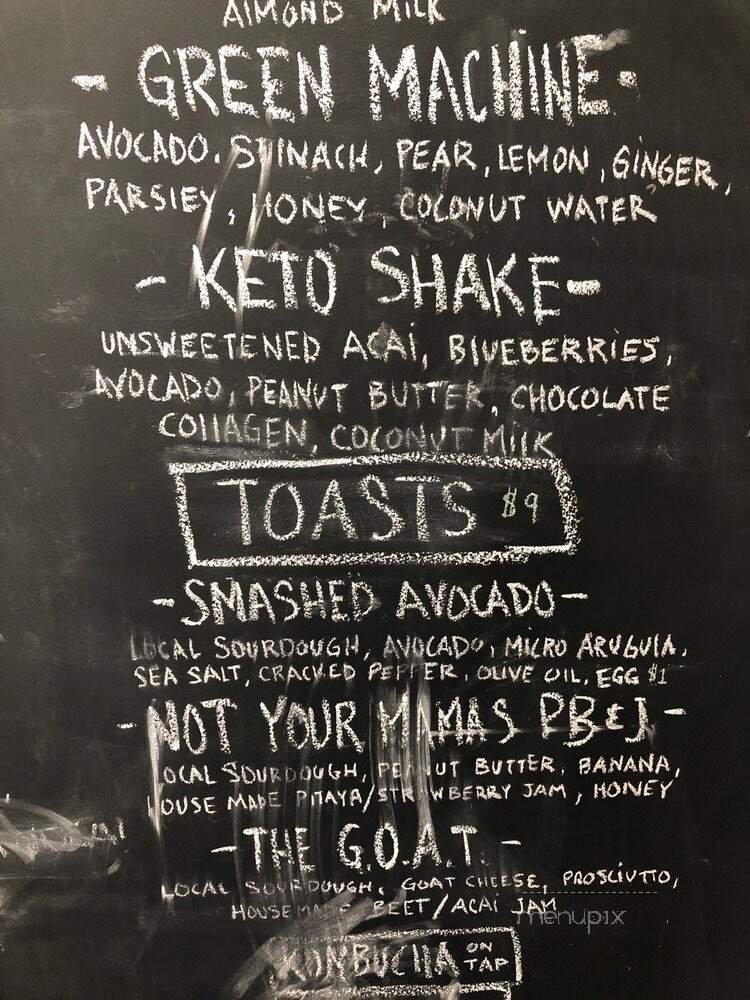 ALMOND MILK
- GREEN MACHINE -
AVOCADO, SPINACH, PEAR, LEMON, GINGER,
PARSLEY, HONEY, COCONUT WATER
- KETO SHAKE -
UNSWEETENED ACAÍ, BLUEBERRIES,
AVOCADO, PEANUT BUTTER, CHOCOLATE
COLLAGEN, COCONUT MILK
TOASTS $9
- SMASHED AVOCADO -
LOCAL SOURDOUGH, AVOCADO, MICRO ARUGULA,
SEA SALT, CRACKED PEPPER, OLIVE OIL, EGG $1
- NOT YOUR MAMAS PB&J -
LOCAL SOURDOUGH, PEANUT BUTTER, BANANA,
HOUSE MADE PITAYA/STRAWBERRY JAM, HONEY
- THE G.O.A.T. -
LOCAL SOURDOUGH, GOAT CHEESE, PROSCIUTTO,
HOUSEMADE BEET/ACAÍ JAM
menupix
KOMBUCHA ON TAP